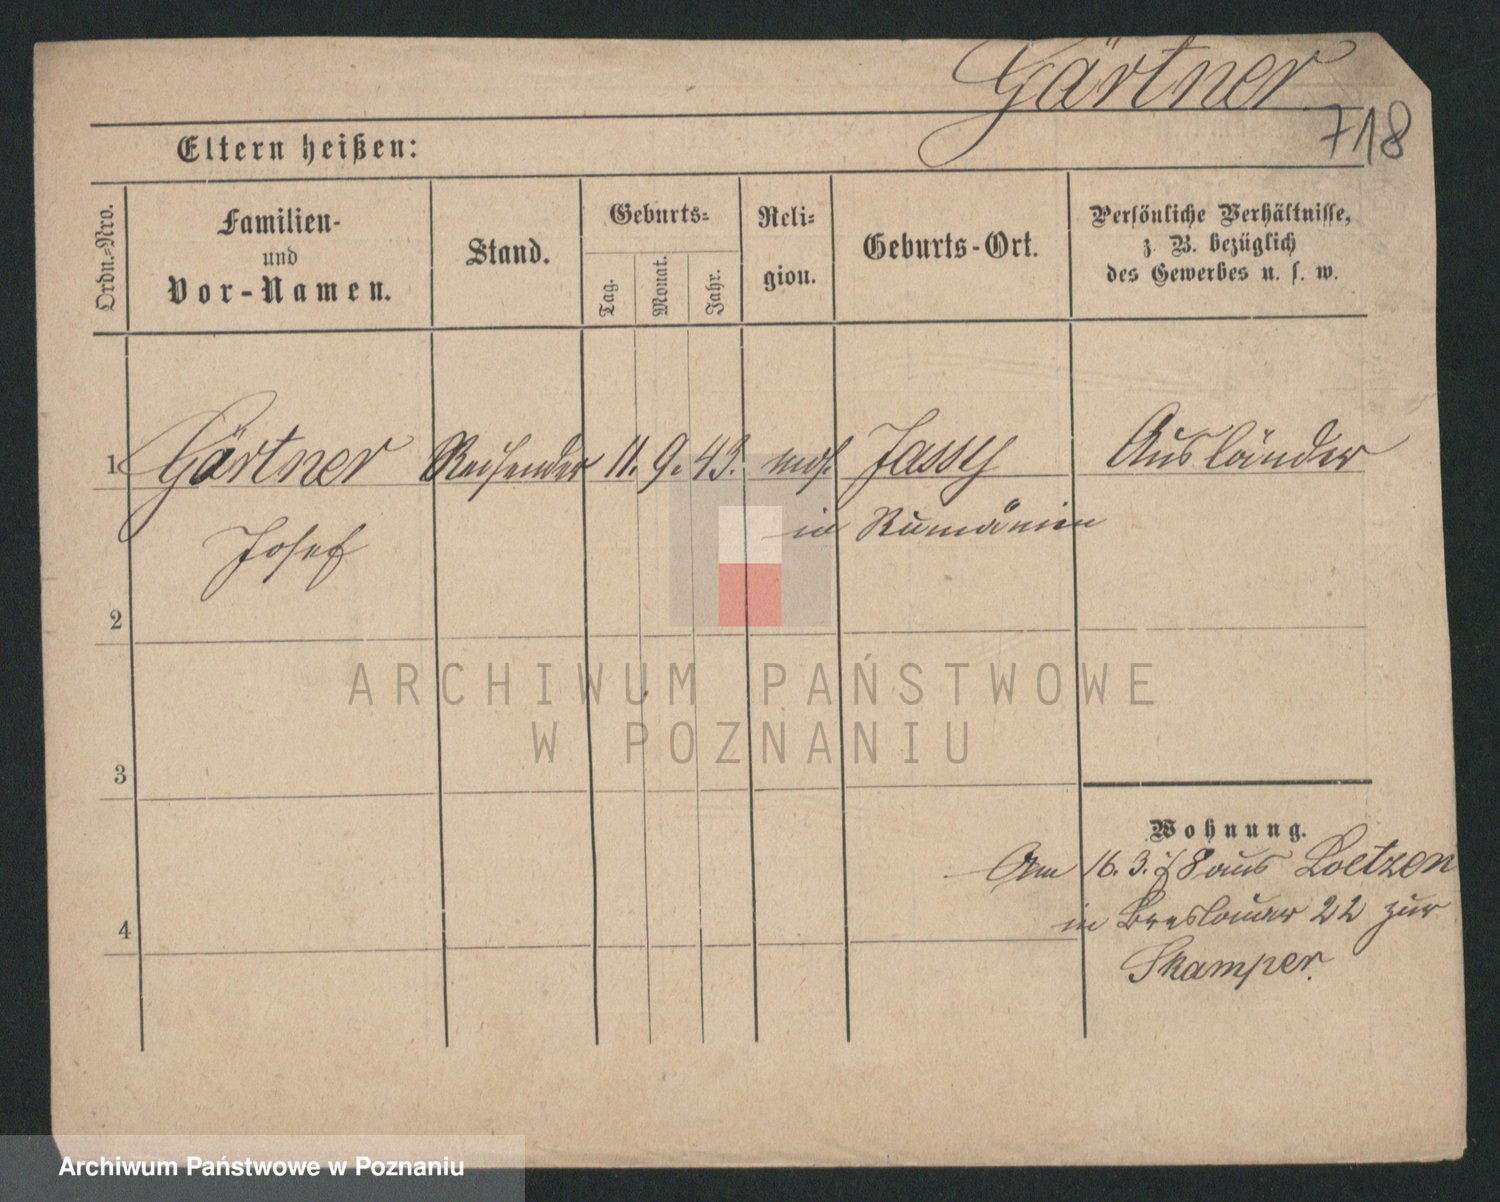 Gärtner
718
Eltern heißen:
Ordn.=Nro.
Familien-
und
Vor-Namen.
Stand.
Geburts=
Tag.
Monat.
Jahr.
Reli=
gion.
Geburts-Ort.
Persönliche Verhältnisse,
z. B. bezüglich
des Gewerbes u. s. w.
1 Gärtner Reisender 11. 9. 43. mos. Jassy Ausländer
Josef in Rumänien
2
3
4
Wohnung.
Am 16. 3. 78 aus Loetzen
in Breslauer 22 zur
Skamper.
ARCHIWUM PAŃSTWOWE
W POZNANIU
Archiwum Państwowe w Poznaniu